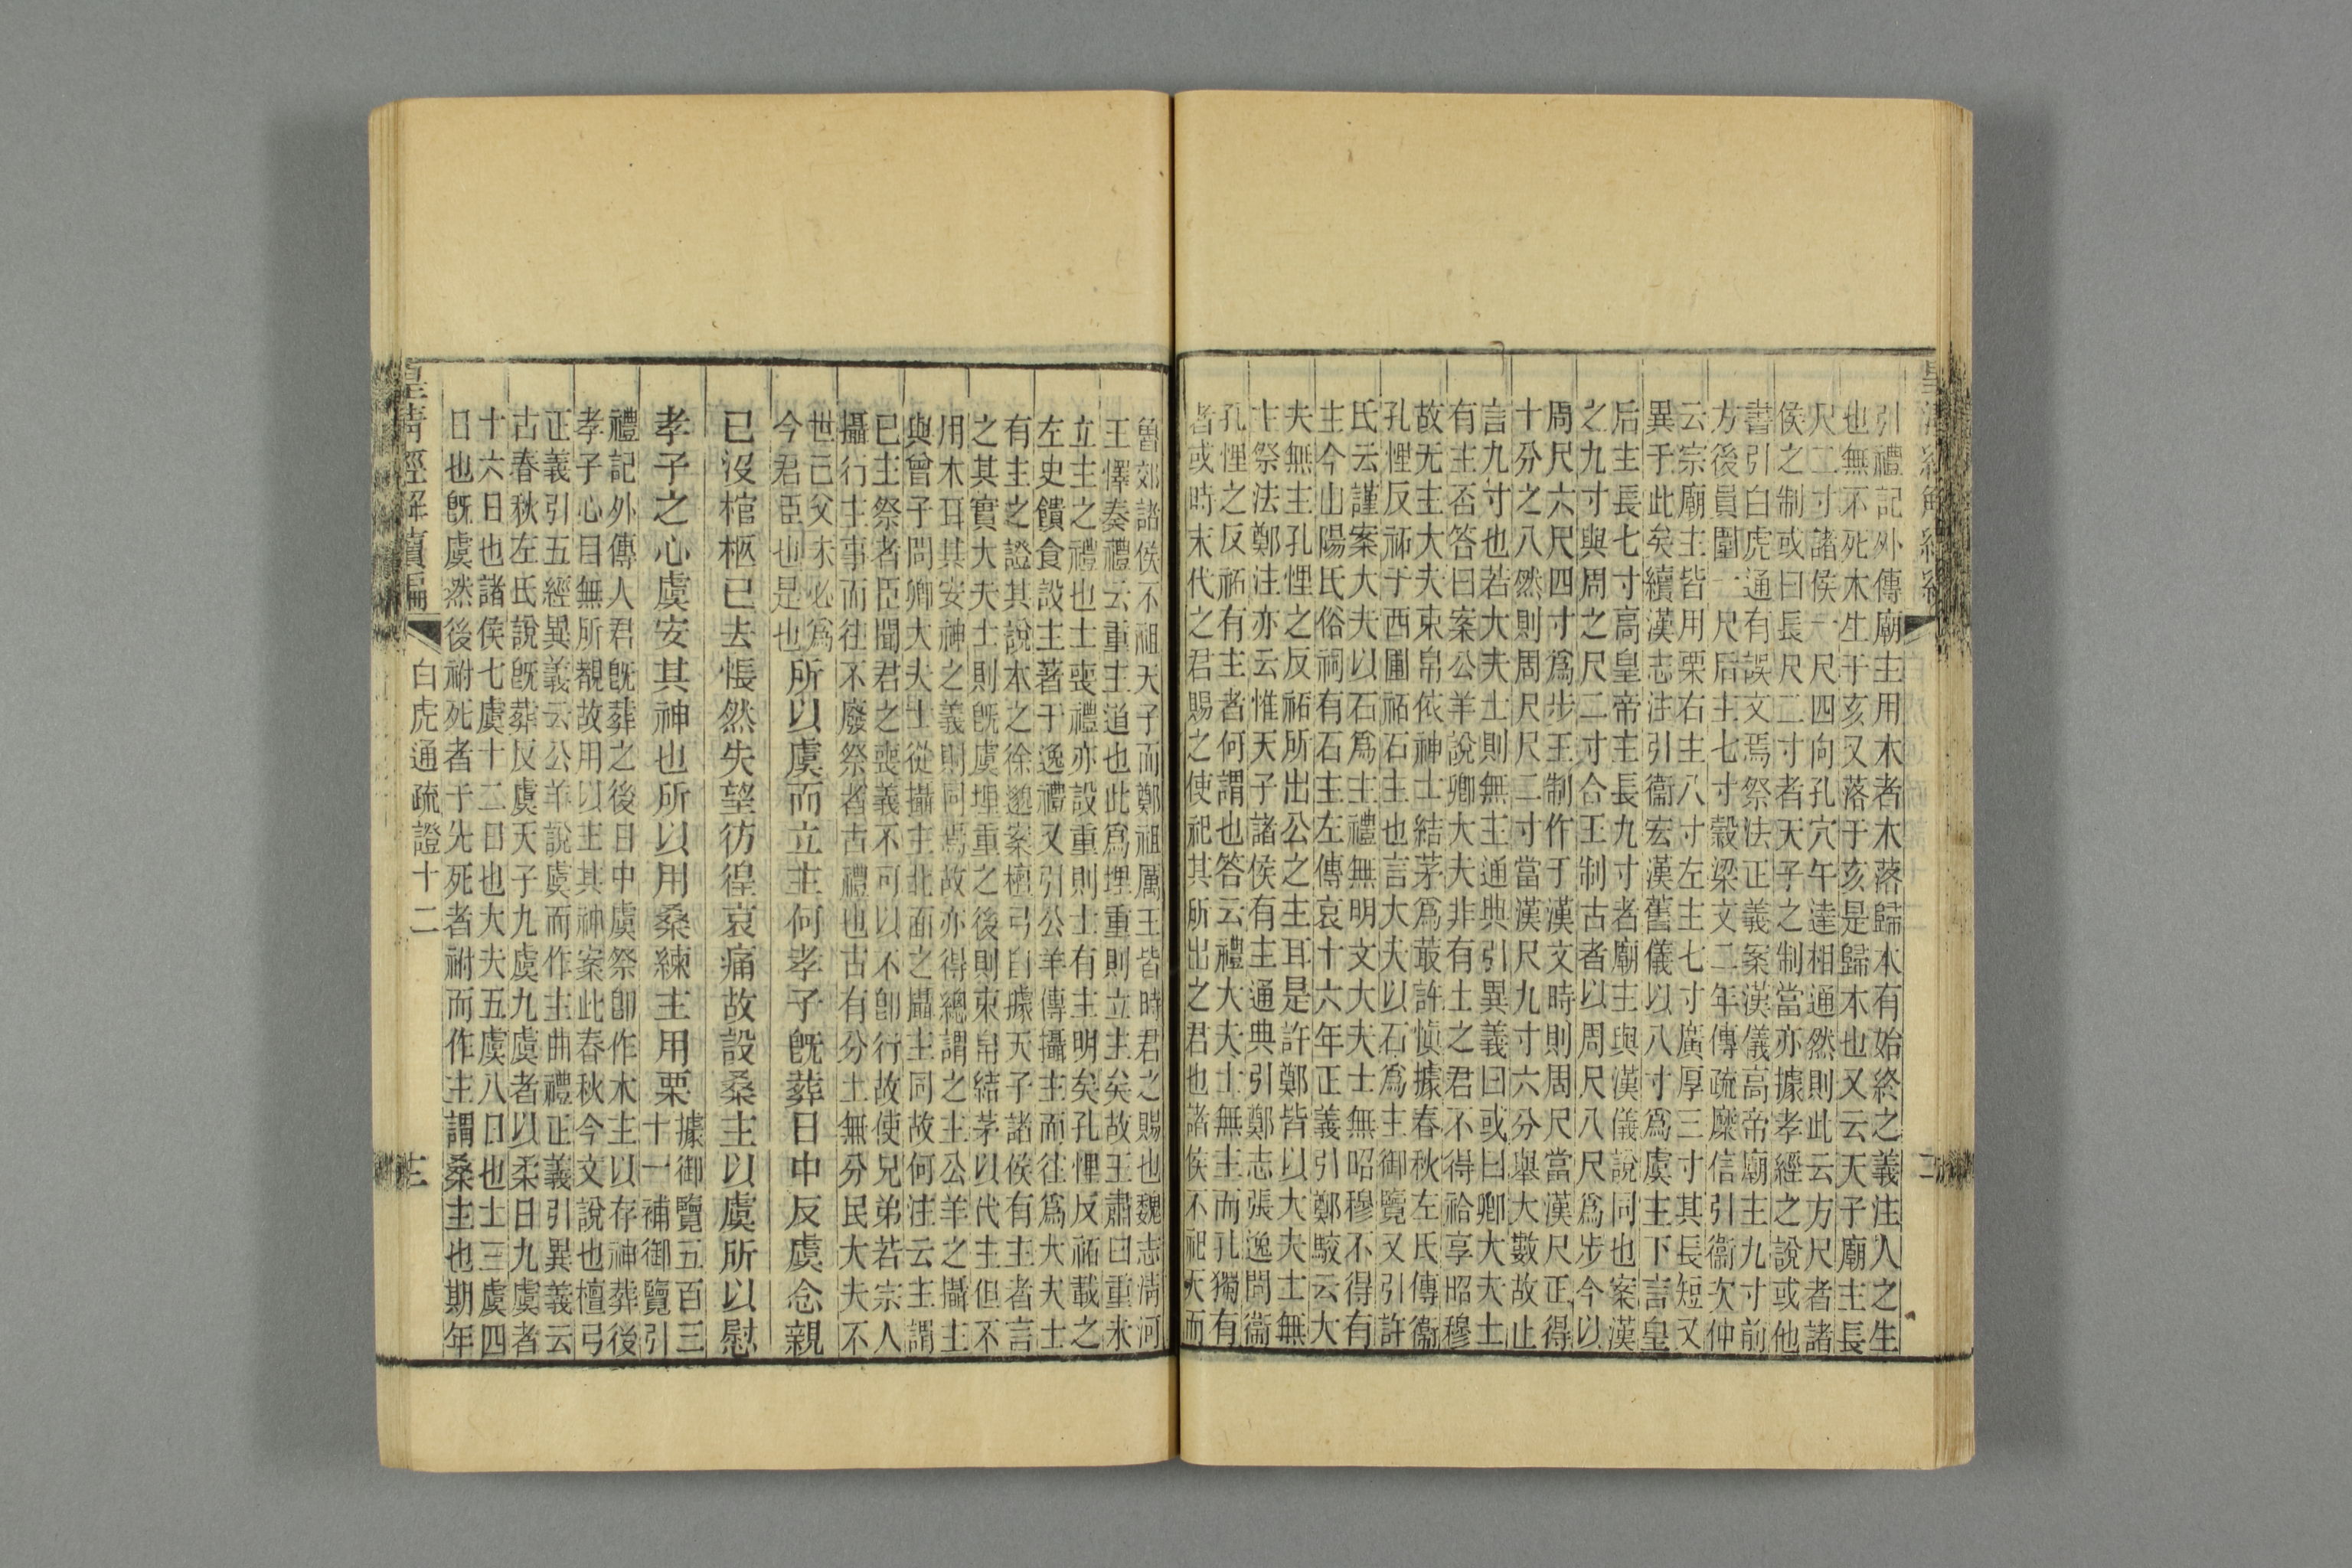 引禮記外傳廟主用木者木落歸本有始終之義注人之生
也無不死木生于亥又落于亥是歸木也又云天子廟主長
尺二寸諸侯一尺四向孔穴午達相通然則此云方尺者諸
侯之制或曰長尺二寸者天子之制當亦據孝經之說或他
書引白虎通有誤文焉祭法正義案漢儀高帝廟主九寸前
方後員圍一尺后主七寸榖梁文二年傳疏糜信引衞次仲
云宗廟主皆用栗右主八寸左主七寸廣厚三寸其長短又
異于此矣續漢志注引衞宏漢舊儀以八寸爲虞主下言皇
后主長七寸高皇帝主長九寸者廟主與漢儀說同也案漢
之九寸與周之尺二寸合王制古者以周尺八尺爲步今以
周尺六尺四寸爲步王制作于漢文時則周尺當漢尺正得
十分之八然則周尺尺二寸當漢尺九寸六分舉大數故止
言九寸也若大夫士則無主通典引異義曰或曰卿大夫士
有主否答曰案公羊說卿大夫非有土之君不得祫享昭穆
故无主大夫束帛依神士結茅爲菆許慎據春秋左氏傳衞
孔悝反祏于西圃祏石主也言大夫以石爲主御覽又引許
氏云謹案大夫以石爲主禮無明文大夫士無昭穆不得有
主今山陽氏俗祠有石主左傳哀十六年正義引鄭駁云大
夫無主孔悝之反祏所出公之主耳是許鄭皆以大夫士無
主祭法鄭注亦云惟天子諸侯有主通典引鄭志張逸問衞
孔悝之反祏有主者何謂也答云禮大夫士無主而孔獨有
者或時末代之君賜之使祀其所出之君也諸侯不祀天而
魯郊諸侯不祖天子而鄭祖厲王皆時君之賜也魏志淸河
王懌奏禮云重主道也此爲埋重則立主矣故王肅曰重未
立主之禮也士喪禮亦設重則士有主明矣孔悝反祏載之
左史饋食設主著于逸禮又引公羊傳攝主而往爲大夫士
有主之證其說本之徐邈案檀弓自據天子諸侯有主者言
之其實大夫士則旣虞埋重之後則束帛結茅以代主但不
用木耳其安神之義則同焉故亦得總謂之主公羊之攝主
與曾子問卿大夫士從攝主北面之攝主同故何注云主謂
已主祭者臣聞君之喪義不可以不卽行故使兄弟若宗人
攝行主事而往不廢祭者古禮也古有分土無分民大夫不
世己父未必爲
今君臣也是也所以虞而立主何孝子旣葬日中反虞念親
已沒棺柩已去悵然失望彷徨哀痛故設桑主以虞所以慰
孝子之心虞安其神也所以用桑練主用栗據御覽五百三
十一補御覽引
禮記外傳人君旣葬之後日中虞祭卽作木主以存神葬後
孝子心目無所覩故用以主其神案此春秋今文說也檀弓
正義引五經異義云公羊說虞而作主曲禮正義引異義云
古春秋左氏說旣葬反虞天子九虞九虞者以柔日九虞者
十六日也諸侯七虞十二日也大夫五虞八日也士三虞四
日也旣虞然後祔死者于先死者祔而作主謂桑主也期年
皇淸經解續編
白虎通疏證十二
三